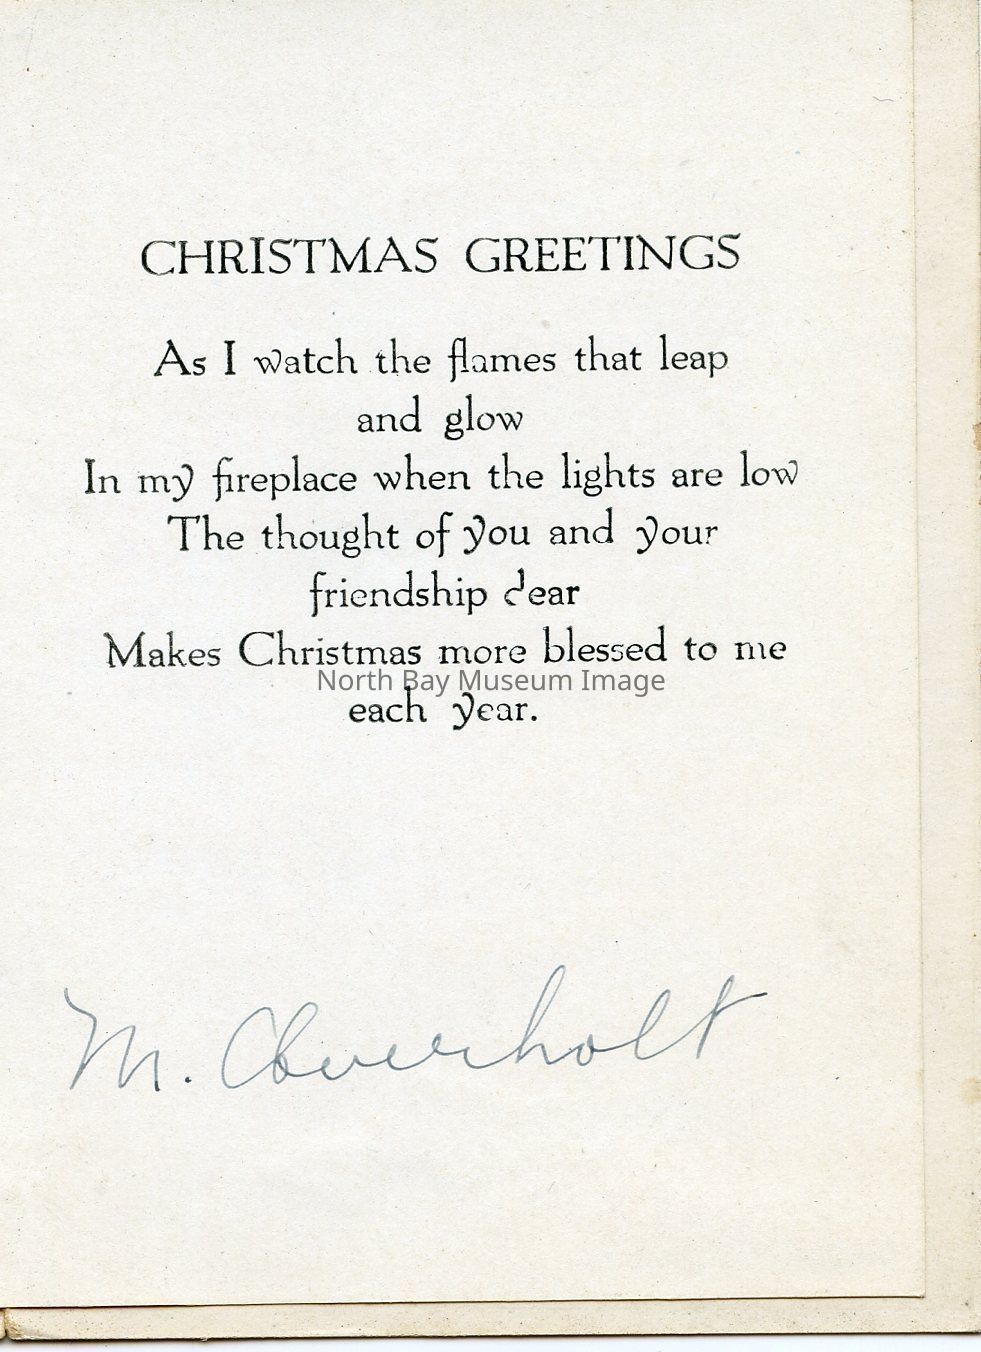 CHRISTMAS GREETINGS
As I watch the flames that leap
and glow
In my fireplace when the lights are low
The thought of you and your
friendship dear
Makes Christmas more blessed to me
North Bay Museum Image
each year.
M. Overholt